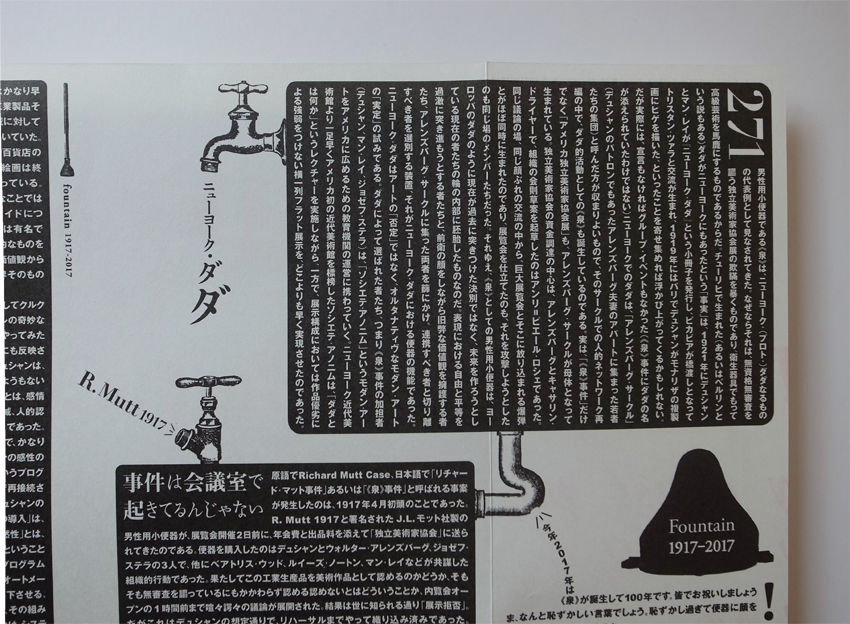 271
男性用小便器である《泉》は、ニューヨーク(プロト)・ダダなるもの
の代表例として見なされてきた。なぜならそれは、無資格無審査を
謳う独立美術家協会展の欺瞞を暴くものであり、衛生器具でもって
高級芸術を馬鹿にするものであるからだ。チューリヒで生まれた(あるいはベルリンと
いう説もある)ダダがニューヨークにもあったという「事実」は、1921年にデュシャン
とマン・レイが『ニューヨーク・ダダ』という小冊子を発行し、ピカビアが橋渡しとなって
トリスタン・ツァラと交流が生まれ、1919年にはパリでデュシャンがモナリザの複製
画にヒゲを描いた、といったことを寄せ集めれば浮かび上がってくるかもしれない。
だが実際には、宣言もなければグループ・イベントもなかった(《泉》事件にダダの名
が添えられていたわけではない)ニューヨークでのダダは、「アレンズバーグ・サークル」
(デュシャンのパトロンでもあったアレンズバーグ夫妻のアパートに集まった若者
たちの集団)と呼んだ方が収まりよいもので、そのサークルでの人的ネットワーク再
編の中で、ダダ的活動としての《泉》も誕生しているのである。実は、「《泉》事件」だけ
でなく「アメリカ独立美術家協会展」も、アレンズバーグ・サークルが母体となって
生まれている。独立美術家協会の資金調達の中心は、アレンズバーグとキャサリン・
ドライヤーで、組織の会則草案を起草したのはアンリ=ピエール・ロシェであった。
同じ議論の場、同じ顔ぶれの交流の中から、巨大展覧会とそこに放り込まれる爆弾
とがほぼ同時に生まれたのであり、展覧会を仕立てたのも、それを攻撃しようとした
のも同じ場のメンバーたちだった。それゆえ、《泉》としての男性用小便器は、ヨー
ロッパのダダのように現在が過去に突きつけた決別ではなく、未来を作ろうとし
ている現在の者たちの輪の内部に胚胎したものなのだ。表現における自由と平等を
過激に突き進もうとする者たちと、前衛の顔をしながら旧弊な価値観を擁護する者
たち、アレンズバーグ・サークルに集った両者を篩にかけ、連携すべき者と切り離
すべき者を選別する装置、それがニューヨーク・ダダにおける便器の機能であった。
ニューヨーク・ダダはアートの「否定」ではなく、オルタナティヴなモダン・アート
の「実定」の試みである。ダダによって選ばれた者たち、つまり《泉》事件の加担者
(デュシャン、マン・レイ、ジョゼフ・ステラ)は、「ソシエテ・アノニム」というモダン・アー
トをアメリカに広めるための教育機関の運営に携わっていく。ニューヨーク近代美
術館より一足早くアメリカ初の近代美術館を標榜したソシエテ・アノニムは、「ダダと
は何か」というレクチャーを実施しながら、一方で、展示構成においては作品優劣に
よる強弱をつけない横一列フラット展示を、どこよりも早く実現させたのであった。
ニューヨーク・ダダ
fountain 1917-2017
R. Mutt 1917
事件は会議室で
起きてるんじゃない
原語でRichard Mutt Case、日本語で「リチャー
ド・マット事件」あるいは「《泉》事件」と呼ばれる事案
が発生したのは、1917年4月初頭のことであった。
R. Mutt 1917と署名されたJ.L.モット社製の
男性用小便器が、展覧会開催2日前に、年会費と出品料を添えて「独立美術家協会」に送ら
れてきたのである。便器を購入したのはデュシャンとウォルター・アレンズバーグ、ジョゼフ・
ステラの3人で、他にベアトリス・ウッド、ルイーズ・ノートン、マン・レイなどが共謀した
組織的行動であった。果たしてこの工業生産品を美術作品として認めるのかどうか、そも
そも無審査を謳っているにもかかわらず認める認めないとはどういうことか、内覧会オー
プンの1時間前まで喧々諤々の議論が展開された。結果は世に知られる通り「展示拒否」。
だがこれはデュシャンの想定通りで、リハーサルまでやって織り込み済みであった。
Fountain
1917–2017
今年2017年は
《泉》が誕生して100年です。皆でお祝いしましょう!
ま、なんと恥ずかしい言葉でしょう。恥ずかし過ぎて便器に顔を